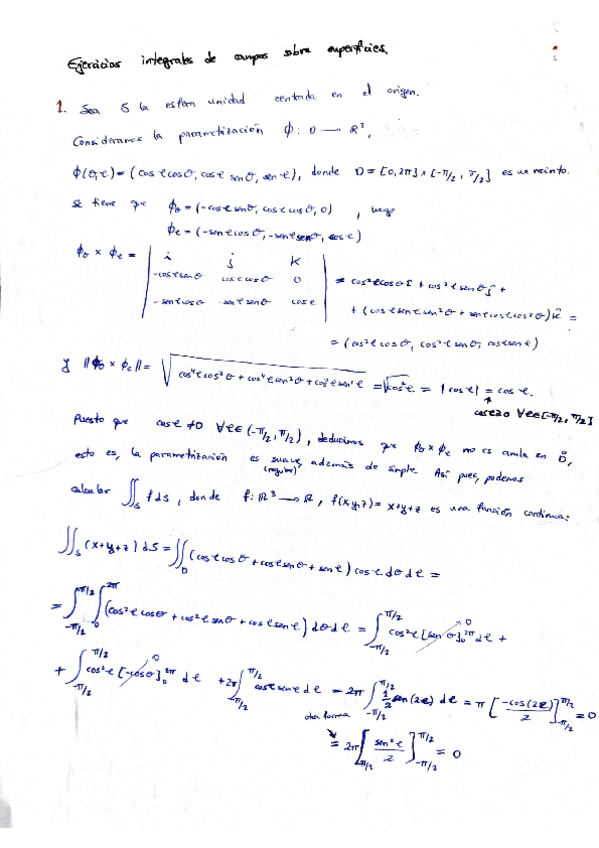 Ejercicios integrales de campos sobre superficies.
1. Sea S la esfera unidad centrada en el origen.
Consideramos la parametrización ϕ: D → ℝ³,
ϕ(θ,φ) = (cosφ cosθ, cosφ senθ, senφ), donde D = [0,2π] × [-π/2, π/2] es un recinto.
Se tiene que ϕ_θ = (-cosφ senθ, cosφ cosθ, 0), luego
ϕ_φ = (-senφ cosθ, -senφ senθ, cosφ)
ϕ_θ × ϕ_φ = | i j k
-cosφ senθ cosφ cosθ 0
-senφ cosθ -senφ senθ cosφ | = cos²φ cosθ i + cos²φ senθ j +
+ (cosφ senφ sen²θ + senφ cosφ cos²θ) k =
= (cos²φ cosθ, cos²φ senθ, cosφ senφ)
y ||ϕ_θ × ϕ_φ|| = √(cos⁴φ cos²θ + cos⁴φ sen²θ + cos²φ sen²φ) = √cos²φ = |cosφ| = cosφ.
cosφ≥0 ∀φ∈[-π/2, π/2]
Puesto que cosφ ≠ 0 ∀φ∈(-π/2, π/2), deducimos que ϕ_θ × ϕ_φ no es nula en D̊,
esto es, la parametrización es suave, además de simple. Así pues, podemos
(regular)
calcular ∬_S f dS, donde f: ℝ³ → ℝ, f(x,y,z) = x+y+z es una función continua:
∬_S (x+y+z) dS = ∬_D (cosφ cosθ + cosφ senθ + senφ) cosφ dθ dφ =
= ∫_{-π/2}^{π/2} ∫_0^{2π} (cos²φ cosθ + cos²φ senθ + cosφ senφ) dθ dφ = ∫_{-π/2}^{π/2} cos²φ [senθ]_0^{2π} dφ + 0
+ ∫_{-π/2}^{π/2} cos²φ [-cosθ]_0^{2π} dφ 0 + 2π ∫_{-π/2}^{π/2} cosφ senφ dφ = 2π ∫_{-π/2}^{π/2} 1/2 sen(2φ) dφ = π [-cos(2φ)/2]_{-π/2}^{π/2} = 0
otra forma
= 2π [sen²φ/2]_{-π/2}^{π/2} = 0